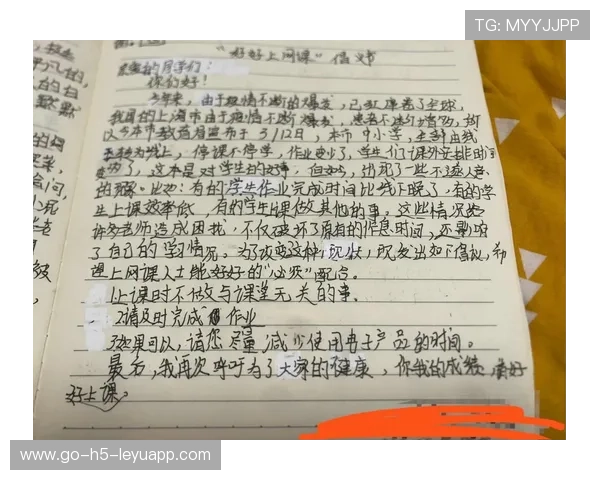 TG: MYYJJPP
"好好上网课"倡议书
亲爱的同学们：
你们好！
今年来，由于疫情不断的爆发，已经席卷了全球，
我国的上海市由于疫情不断爆发，患者不断增多，所
以今本市教育局宣布于3月12日，本市中小学，全部由线
下转为线上，停课不停学，作业变少了，学生们于课外安排时间
变多了，这本是对学生的好事，但如今，出现了一些不尽人意
的现象。比如：有的学生作业完成时间比线下晚了，有的学
生上课效率低，有的学生上课做其他的事。这些情况给
许多老师造成困扰，不仅破坏了原有的作息时间，还影响
了自己的学习情况。为了改变这种现状，现发出如下倡议，希
望上网课人士能好好的"必须"配合。
1上课时不做与课堂无关的事.
2请及时完成作业
3如果可以，请您尽量减少使用电子产品的时间。
最后，我再次呼吁为了大家的健康，你我的成绩，请好
好上课。
www-go-h5-leyuapp.com